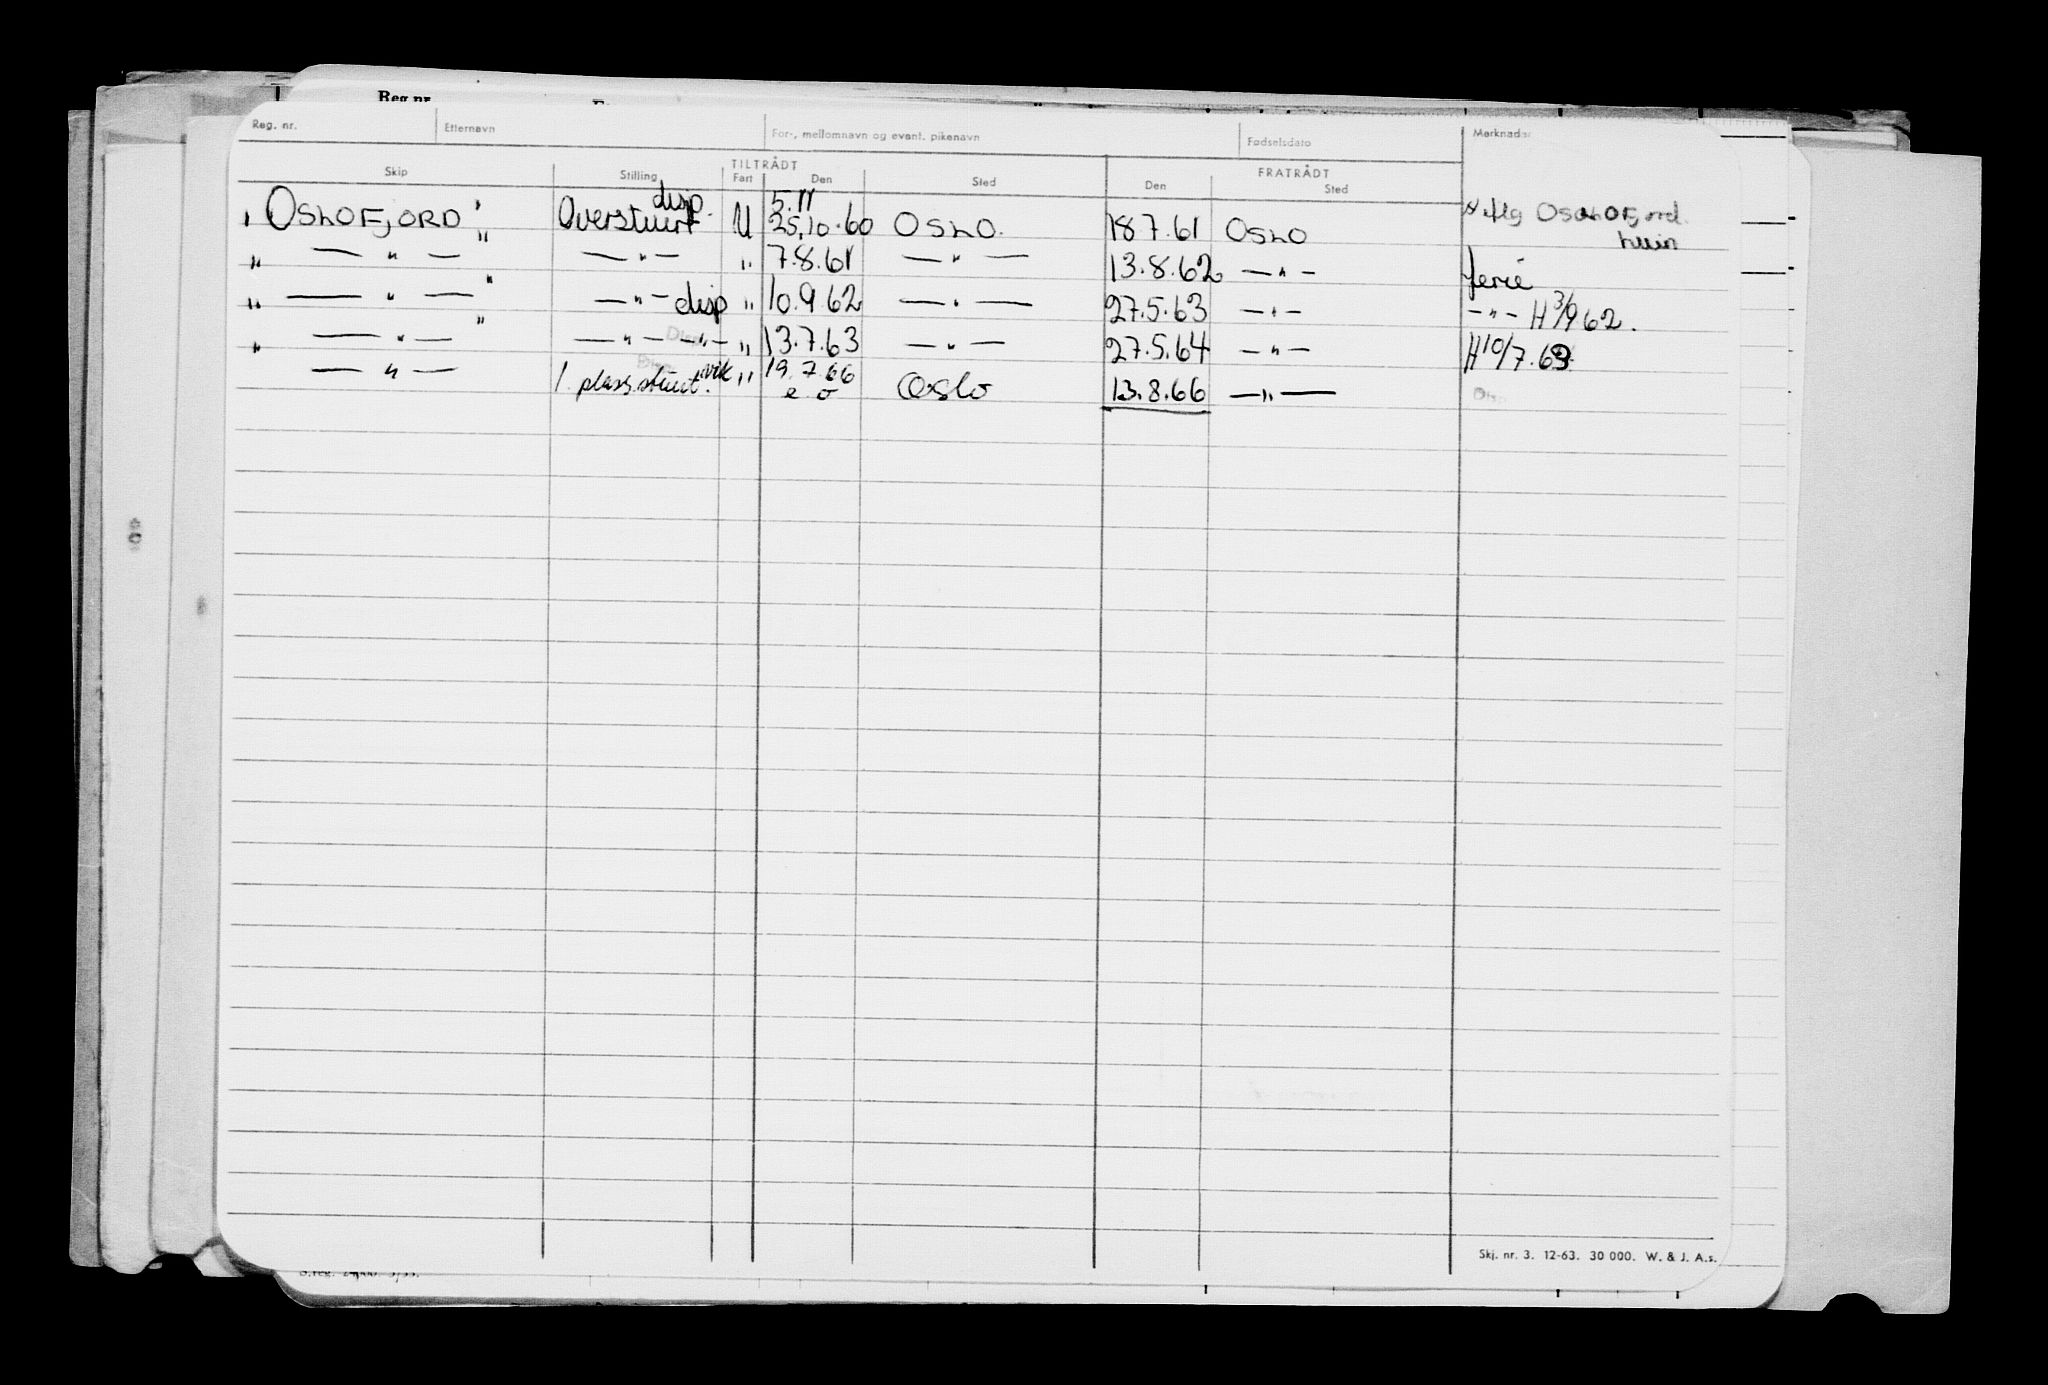 Reg. nr.
Reg. nr. Etternavn For-, mellomnavn og event. pikenavn Fødselsdato Merknader
TILTRÅDT FRATRÅDT
Skip Stilling Fart Den Sted Den Sted
disp. 5.11
" OSLOFJORD " Overstuert U 25.10.60 OSLO. 18.7.61 OSLO Oslofjord.
" — " — — " — " 7.8.61 — " — 13.8.62 — " — ferie
" — " — " — " — disp " 10.9.62 — " — 27.5.63 — " — — " — H 3/9 62.
" — " — " — " — — " — " 13.7.63 — " — 27.5.64 — " — H 10/7.63
— " — 1. plass.stuert. vik " 19.7.66 Oslo 13.8.66 — " —
e o
Disp
Skj. nr. 3. 12-63. 30 000. W. & J. A.s.